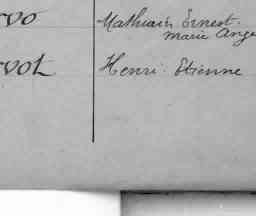 rvo Mathurin Ernest.
Marie Ange
rvot Henri Etienne